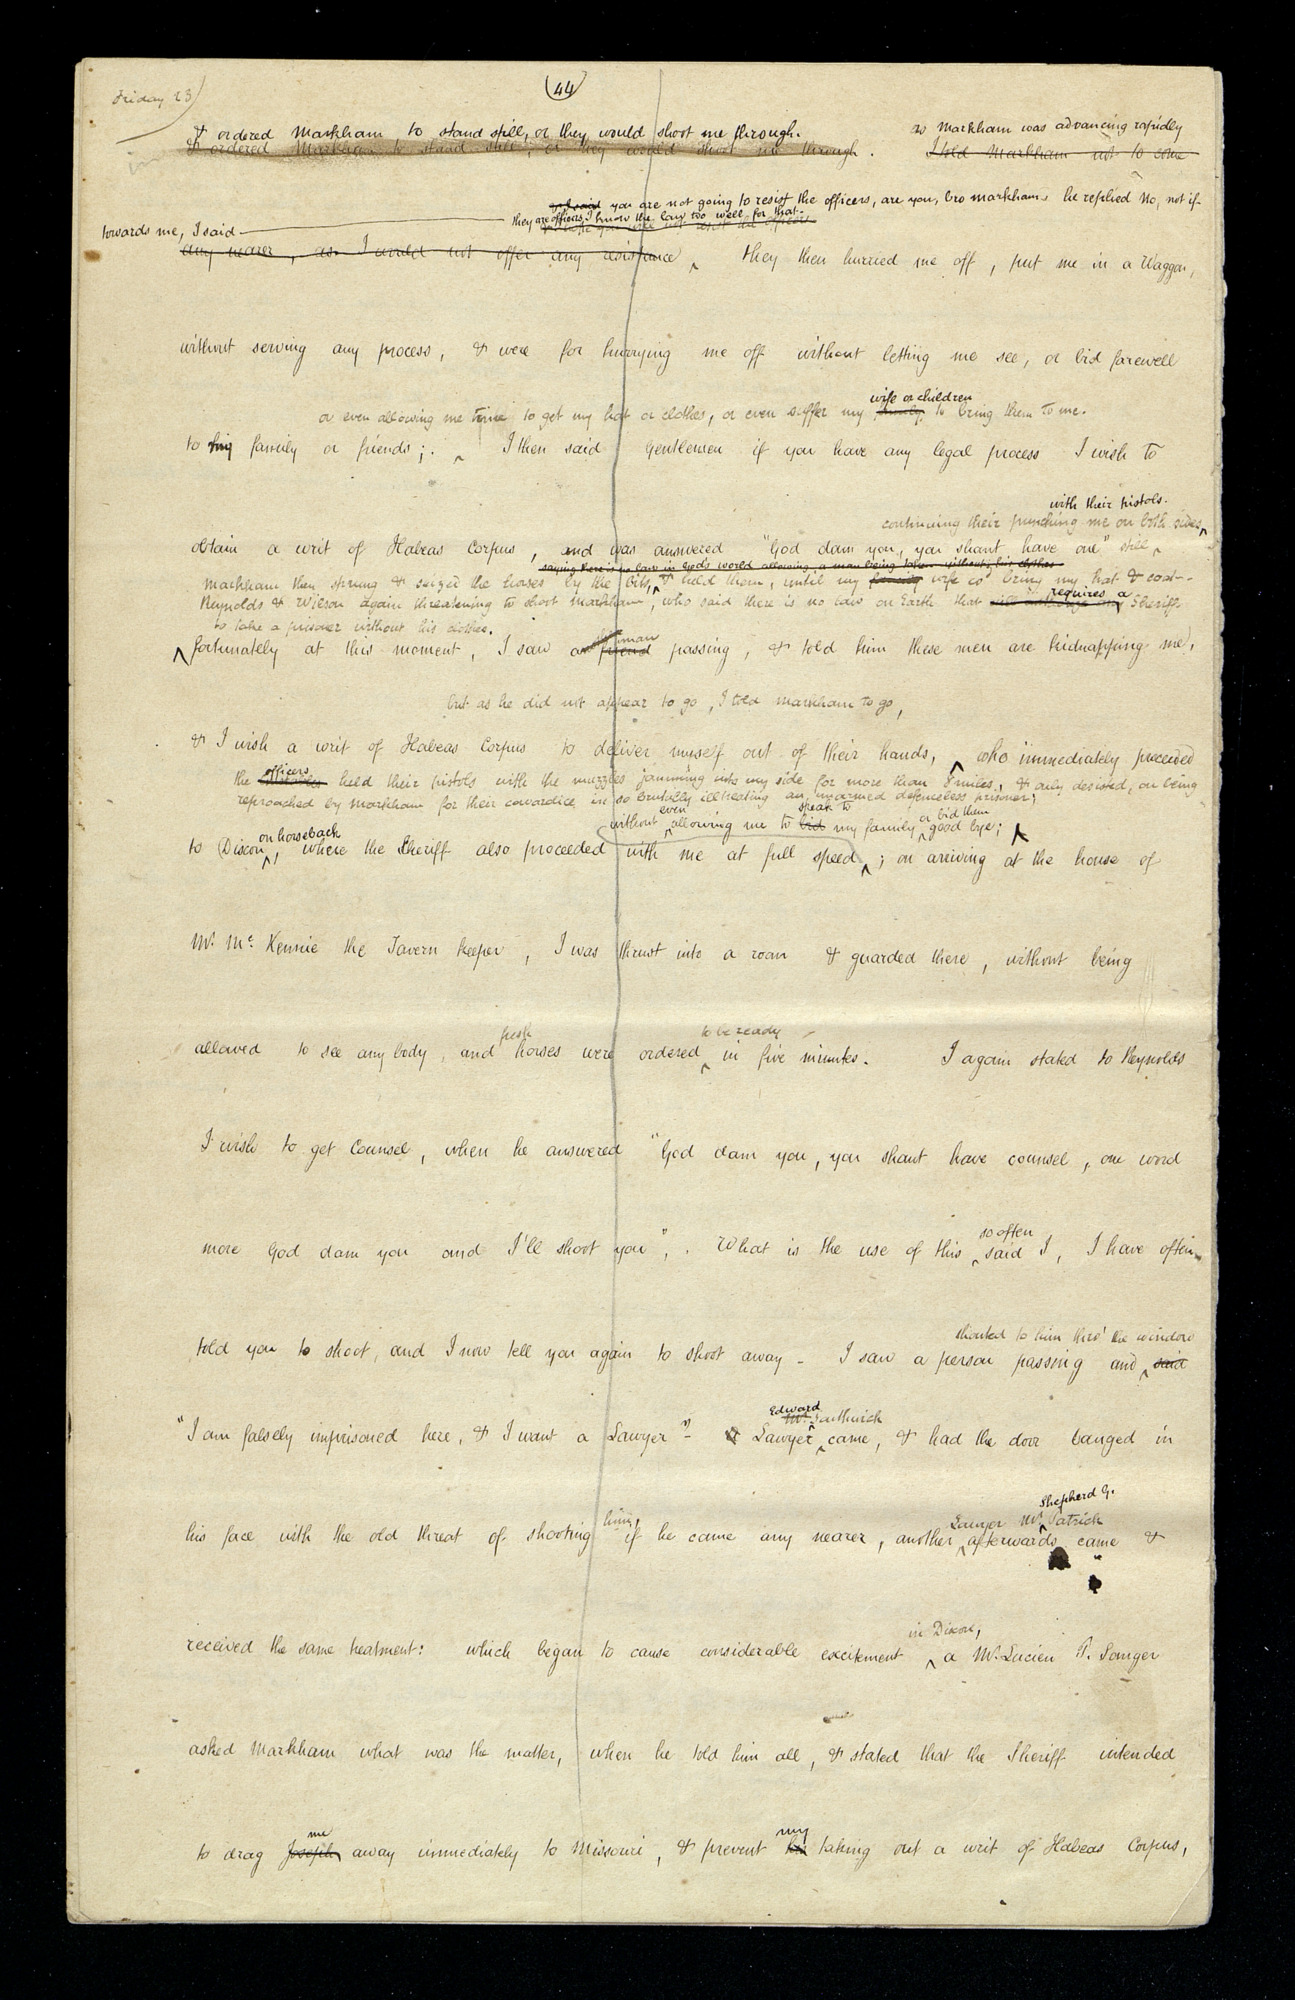 Friday 23
44
& ordered Markham to stand still, or they would shoot me through. as Markham was advancing rapidly
& ordered Markham to stand still, or they would shoot me through. I told Markham not to come
& I said you are not going to resist the officers, are you, bro Markham. he replied No, not if
towards me, I said
they are officers, I know the law too well for that.
any nearer, as I would not offer any resistance ‸ they then hurried me off, put me in a Waggon,
without serving any process, & were for hurrying me off without letting me see, or bid farewell
wife or children
or even allowing me time to get my hat or clothes, or even suffer my family to bring them to me.
to my family or friends; ‸ I then said Gentlemen if you have any legal process I wish to
with their pistols.
continuing their punching me on both sides ‸
obtain a writ of Habeas Corpus, and was answered "God dam you, you shant have one" still ‸
saying there is no law in God's world allowing a man being taken without his clothes
Markham then sprung & seized the horses by the bits, ‸ & held them, until my family wife cod. bring my hat & coat—
requires a
Reynolds & Wilson again threatening to shoot Markham, who said there is no law on Earth that Sheriff
to take a prisoner without his clothes.
man
‸ fortunately at this moment, I saw a friend passing, & told him these men are kidnapping me,
but as he did not appear to go, I told Markham to go,
& I wish a writ of Habeas Corpus to deliver myself out of their hands, ‸ who immediately proceeded
officers
the held their pistols with the muzzles jamming into my side for more than 8 miles, & only desisted, on being
reproached by Markham for their cowardice in so brutally illtreating an unarmed defenceless prisoner;
even speak to or bid them
without ‸ allowing me to bid my family ‸ good bye; ‸
on horseback
to Dixon ‸, where the Sheriff also proceeded with me at full speed ‸; on arriving at the house of
Mr. Mc.Kennie the Tavern keeper, I was thrust into a room & guarded there, without being
fresh to be ready
allowed to see any body, and horses were ordered ‸ in five minutes. I again stated to Reynolds
I wish to get Counsel, when he answered "God dam you, you shant have counsel, one word
so often
more God dam you and I'll shoot you",. What is the use of this ‸ said I, I have often
shouted to him thro' the window
told you to shoot, and I now tell you again to shoot away— I saw a person passing and ‸ said
Edward
Mr. Southwick
"I am falsely imprisoned here, & I want a Lawyer"— a Lawyer ‸ came, & had the door banged in
Shepherd G.
him, Lawyer Mr. ‸ Patrick
his face with the old threat of shooting if he came any nearer, another ‸ afterwards came &
in Dixon,
received the same treatment: which began to cause considerable excitement ‸ a Mr. Lucien P. Sanger
asked Markham what was the matter, when he told him all, & stated that the Sheriff intended
me my
to drag Joseph away immediately to Missouri, & prevent his taking out a writ of Habeas Corpus,